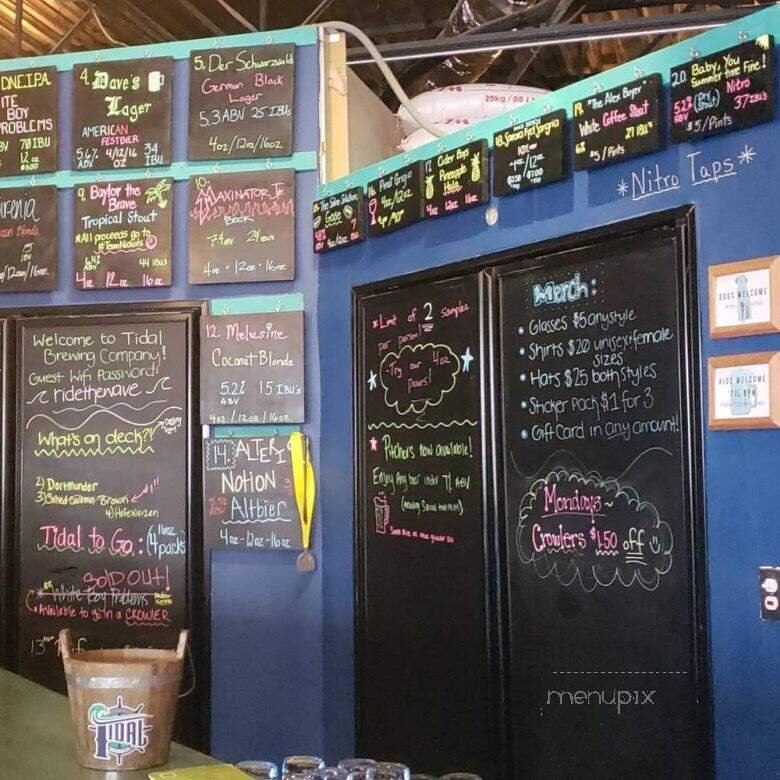 DNEIPA
BOY
PROBLEMS
70 IBU
4. Dave's
Lager
AMERICAN
FESTBIER
5.6% 4/12/16 34
ABV oz IBU
5. Der Schwarzwald
German Black
Lager
5.3 ABV 25 IBUs
4oz/12oz/16oz
9. Baylor the
Brave
Tropical Stout
*All proceeds go to
#TeamNichols
44 IBUs
4oz 12oz 16oz
10.
MAXINATOR Jr
Bock
4oz · 12oz · 16oz
12. Melusine
Coconut Blonde
5.2% 15 IBU's
ABV
4oz / 12oz / 16oz
14. ALTER
NOTION
Altbier
4oz-12oz-16oz
Gose
16. Pinot Grigio
17. Cider Boys
Pineapple
Hula
4oz 12oz 16oz
18.
19. "The Alex Boyer"
White Coffee Stout
27 IBU's
$5/Pints
20. Baby, You
Summer time Fine!
5.2% (Dry Nitro
ABV Stout) 37 IBUs
$5/Pints
*Nitro Taps*
Welcome to Tidal
Brewing Company!
Guest Wifi Password:
ridethewave
What's on deck?!
2) Dortmunder
3) Salted Caramel Brown
4) Hefeweizen
Tidal to Go: (4 16oz packs
SOLD OUT!
* White Boy Problems
*Available to go in a CROWLER
*Limit of 2 samples
per person!
Try our 4oz
Pours!
* Pitchers now available!
Enjoy Any beer under 7% ABV
Merch:
• Glasses $5 any style
• Shirts $20 unisex + female
sizes
• Hats $25 both styles
• Sticker Pack $1 for 3
• Gift Card in any amount!
Mondays~
Crowlers $1.50 off
DOGS WELCOME
KIDS WELCOME
'TIL 8PM
25kg / 55 L
TIDAL
menupix